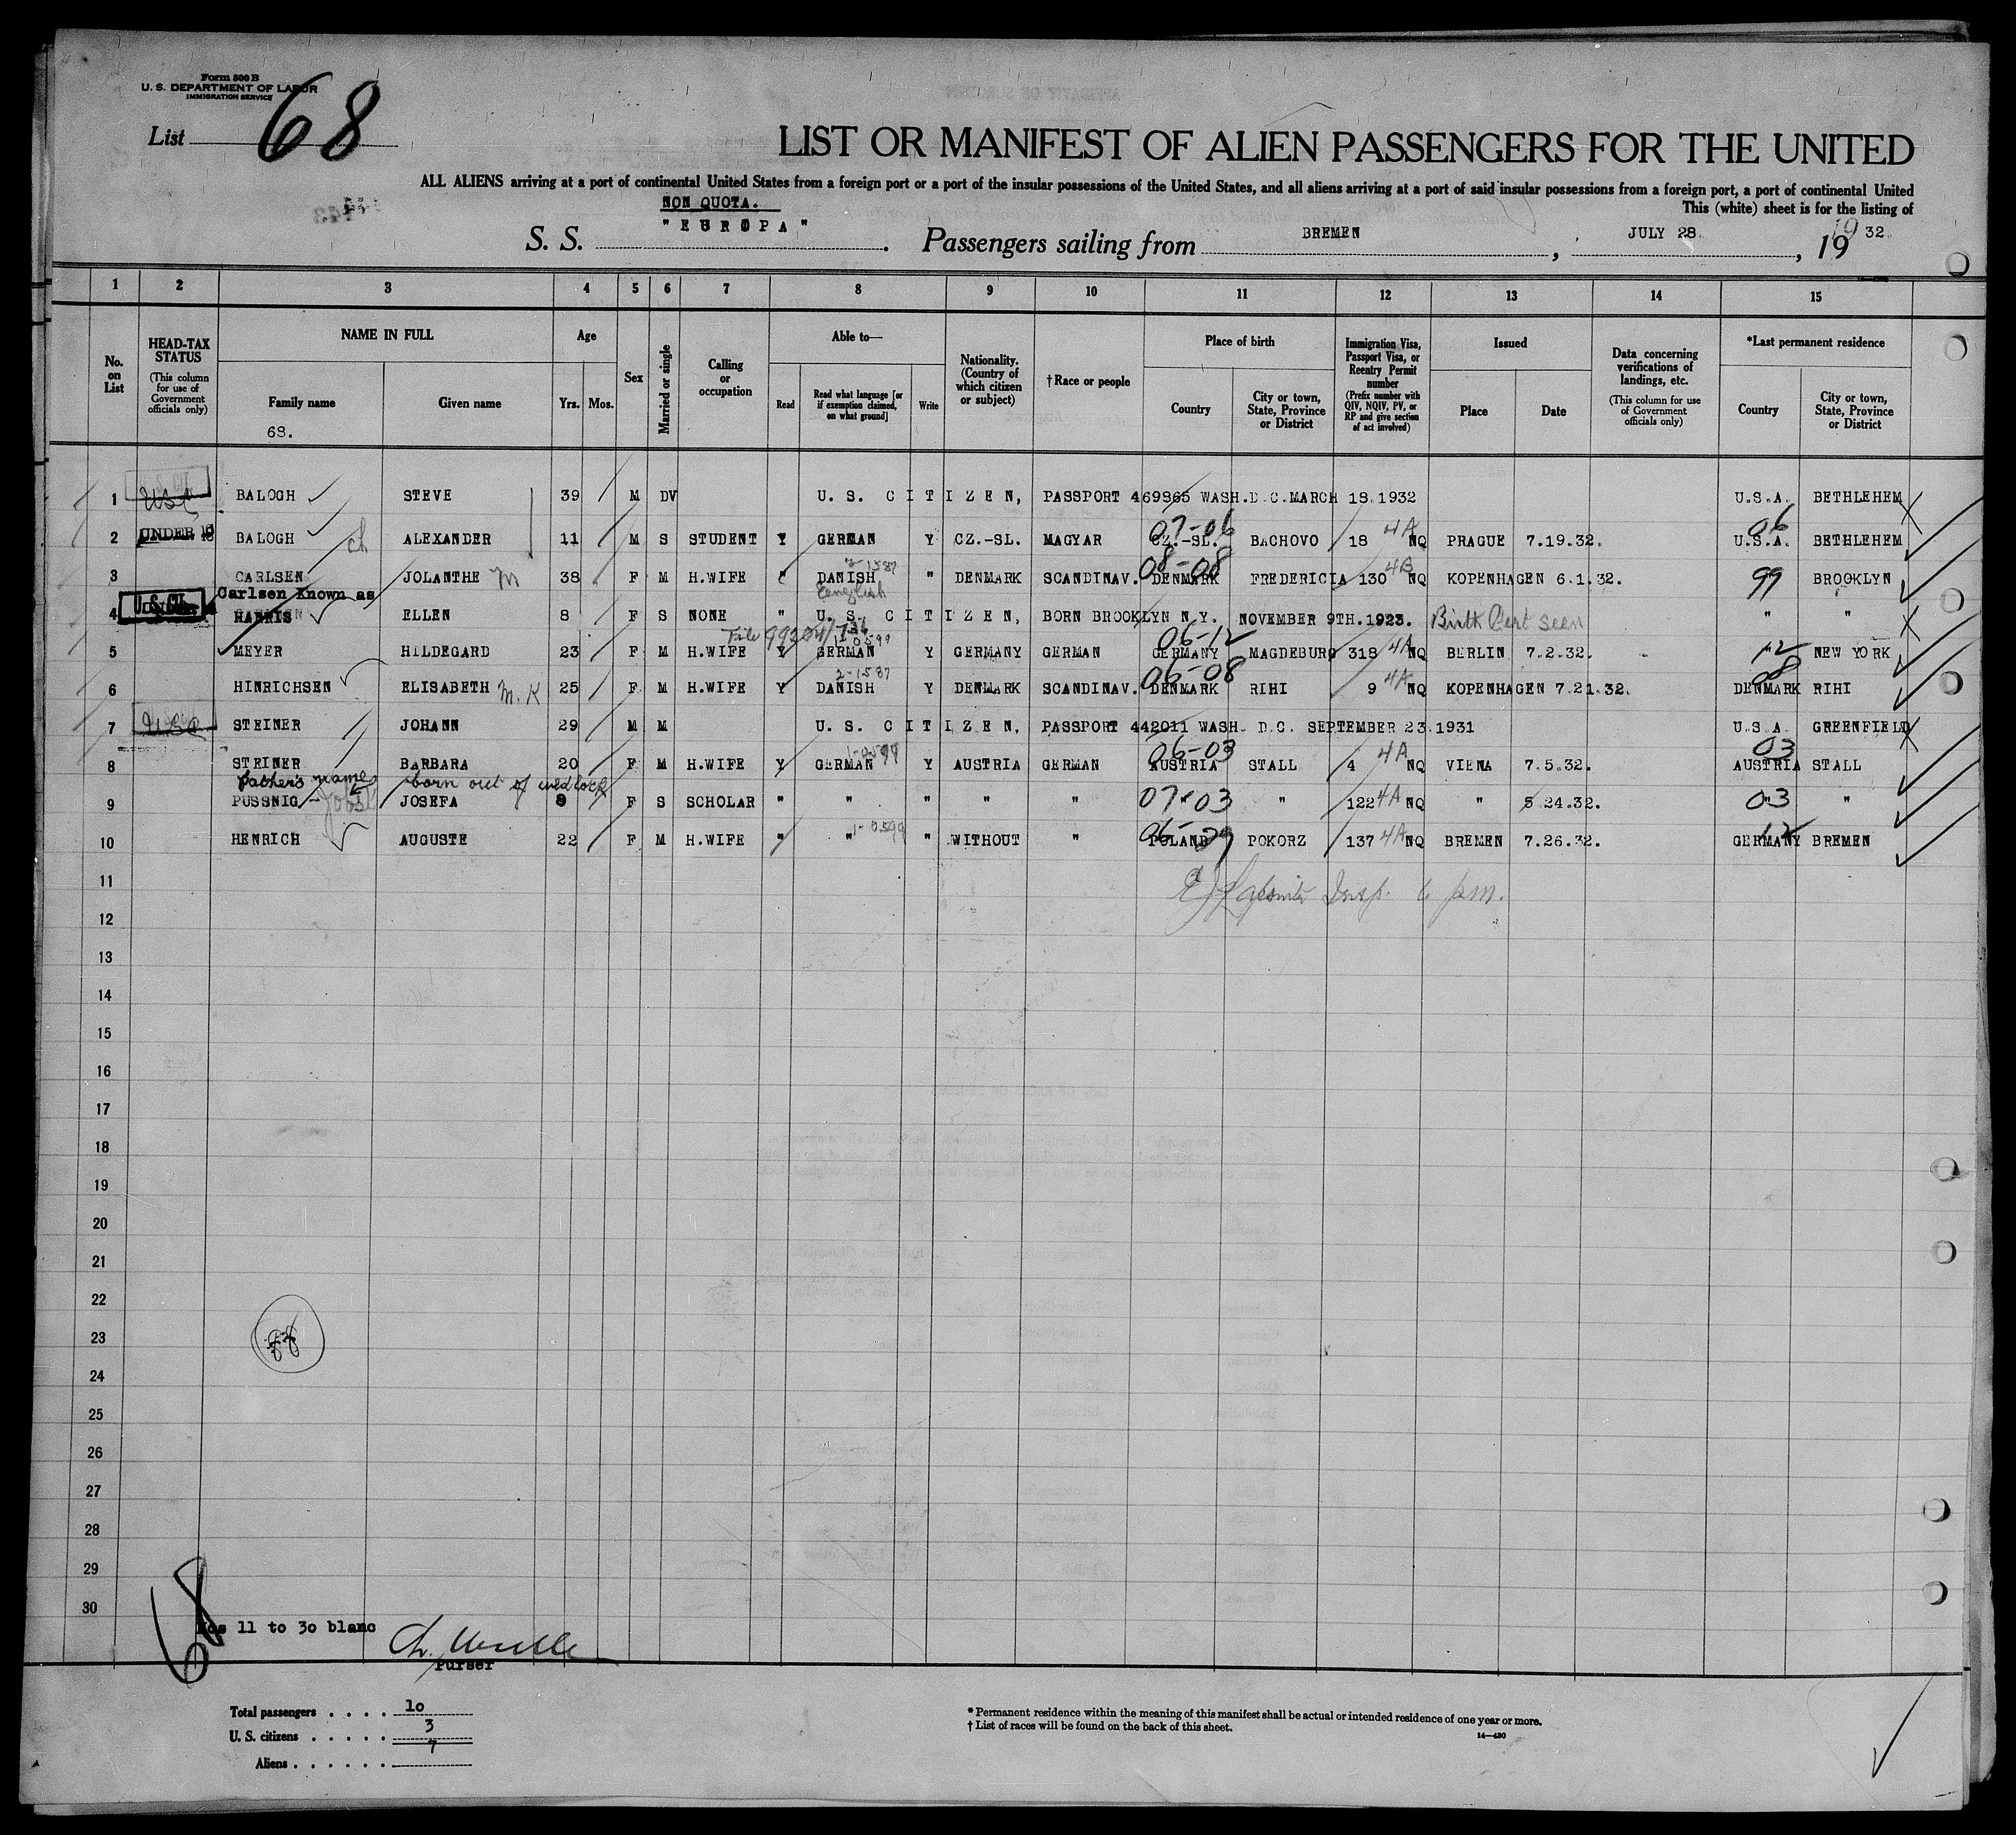 Form 500 B
U. S. DEPARTMENT OF LABOR
IMMIGRATION SERVICE
List 68
LIST OR MANIFEST OF ALIEN PASSENGERS FOR THE UNITED
ALL ALIENS arriving at a port of continental United States from a foreign port or a port of the insular possessions of the United States, and all aliens arriving at a port of said insular possessions from a foreign port, a port of continental United
NON QUOTA.
This (white) sheet is for the listing of
S. S. "EUROPA". Passengers sailing from BREMEN, JULY 28., 19 32.
1 2 3 4 5 6 7 8 9 10 11 12 13 14 15
No. on List
HEAD-TAX STATUS
(This column for use of Government officials only)
NAME IN FULL
Family name
Given name
68.
Age
Yrs. Mos.
Sex
Married or single
Calling or occupation
Able to—
Read
Read what language [or if exemption claimed, on what ground]
Write
Nationality. (Country of which citizen or subject)
† Race or people
Place of birth
Country
City or town, State, Province or District
Immigration Visa, Passport Visa, or Reentry Permit number
(Prefix number with QIV, NQIV, PV, or RP and give section of act involved)
Issued
Place
Date
Data concerning verifications of landings, etc.
(This column for use of Government officials only)
*Last permanent residence
Country
City or town, State, Province or District
1 USC BALOGH STEVE 39 M DV U. S. CITIZEN, PASSPORT 469865 WASH.D.C.MARCH 18.1932 U.S.A. BETHLEHEM
07-06 4A 06
2 UNDER 16 BALOGH ch ALEXANDER 11 M S STUDENT Y GERMAN Y CZ.-SL. MAGYAR CZ.-SL. BACHOVO 18 NQ PRAGUE 7.19.32. U.S.A. BETHLEHEM
2-1587 08-08 4B
3 CARLSEN JOLANTHE M 38 F M H.WIFE " DANISH " DENMARK SCANDINAV. DENMARK FREDERICIA 130 NQ KOPENHAGEN 6.1.32. 99 BROOKLYN
Carlsen Known as English
4 U.S. CIT. HARRIS ELLEN 8 F S NONE " U. S. CITIZEN, BORN BROOKLYN N.Y. NOVEMBER 9TH.1923. Birth Cert seen " "
File 06-12
5 MEYER HILDEGARD 23 F M H.WIFE Y GERMAN Y GERMANY GERMAN GERMANY MAGDEBURG 318 4A NQ BERLIN 7.2.32. 12 NEW YORK
2-1587 06-08 4A 08
6 HINRICHSEN ELISABETH M.K 25 F M H.WIFE Y DANISH Y DENMARK SCANDINAV. DENMARK RIHI 9 NQ KOPENHAGEN 7.21.32. DENMARK RIHI
7 USC STEINER JOHANN 29 M M U. S. CITIZEN, PASSPORT 442011 WASH. D.C. SEPTEMBER 23.1931 U.S.A. GREENFIELD
1-0599 06-03 4A 03
8 STEINER BARBARA 20 F M H.WIFE Y GERMAN Y AUSTRIA GERMAN AUSTRIA STALL 4 NQ VIENA 7.5.32. AUSTRIA STALL
father's name born out of wedlock
9 PUSSNIG - Jobst JOSEFA 9 F S SCHOLAR " " " " " 07-03 " 122 4A NQ " 5.24.32. 03 "
1-0599 12
10 HENRICH AUGUSTE 22 F M H.WIFE " " " WITHOUT " POLAND POKORZ 137 4A NQ BREMEN 7.26.32. GERMANY BREMEN
11
Insp. 6 pm.
12
13
14
15
16
17
18
19
20
21
22
23
24
25
26
27
28
29
30
68
Nos 11 to 30 blanc
Purser
Total passengers . . . . 10
U. S. citizens . . . . . 3
Aliens . . . . . . 7
* Permanent residence within the meaning of this manifest shall be actual or intended residence of one year or more.
† List of races will be found on the back of this sheet.
14—430